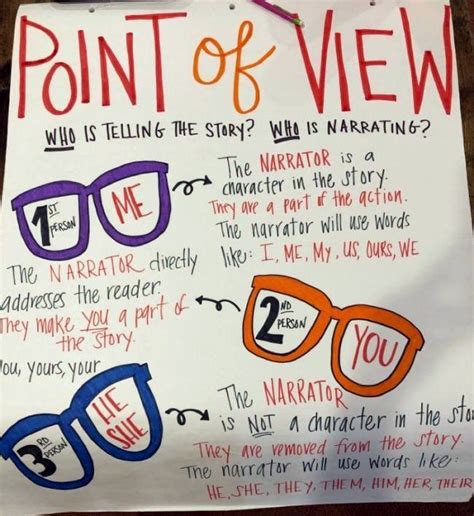 POINT of VIEW
WHO IS TELLING THE STORY? WHO IS NARRATING?
1ST PERSON
ME
The NARRATOR is a
character in the story.
They are a part of the action.
The narrator will use words
like: I, ME, My, US, OURS, WE
The NARRATOR directly
addresses the reader.
They make you a part of
the story.
you, yours, your
2ND PERSON
YOU
3RD PERSON
HE
SHE
The NARRATOR
is NOT a character in the sto
They are removed from the story.
The narrator will use words like:
HE, SHE, THEY, THEM, HIM, HER, THEIR